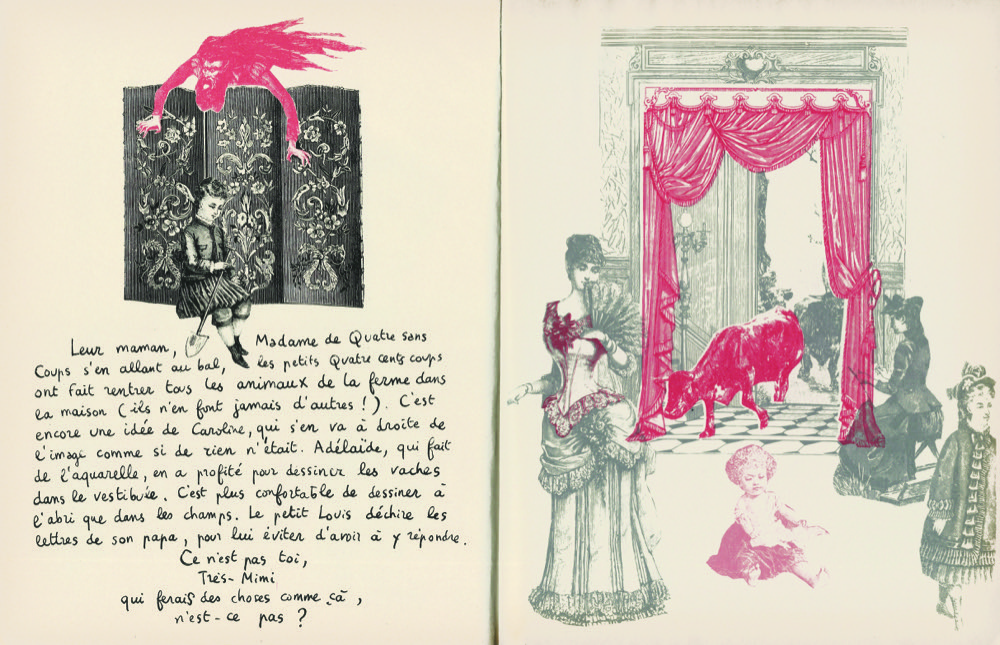 Leur maman, Madame de Quatre sans
Coups s'en allant au bal, les petits Quatre cents coups
ont fait rentrer tous les animaux de la ferme dans
la maison (ils n'en font jamais d'autres !). C'est
encore une idée de Caroline, qui s'en va à droite de
l'image comme si de rien n'était. Adélaïde, qui fait
de l'aquarelle, en a profité pour dessiner les vaches
dans le vestibule. C'est plus confortable de dessiner à
l'abri que dans les champs. Le petit Louis déchire les
lettres de son papa, pour lui éviter d'avoir à y répondre.
Ce n'est pas toi,
Très-Mimi
qui ferais des choses comme ça,
n'est-ce pas ?